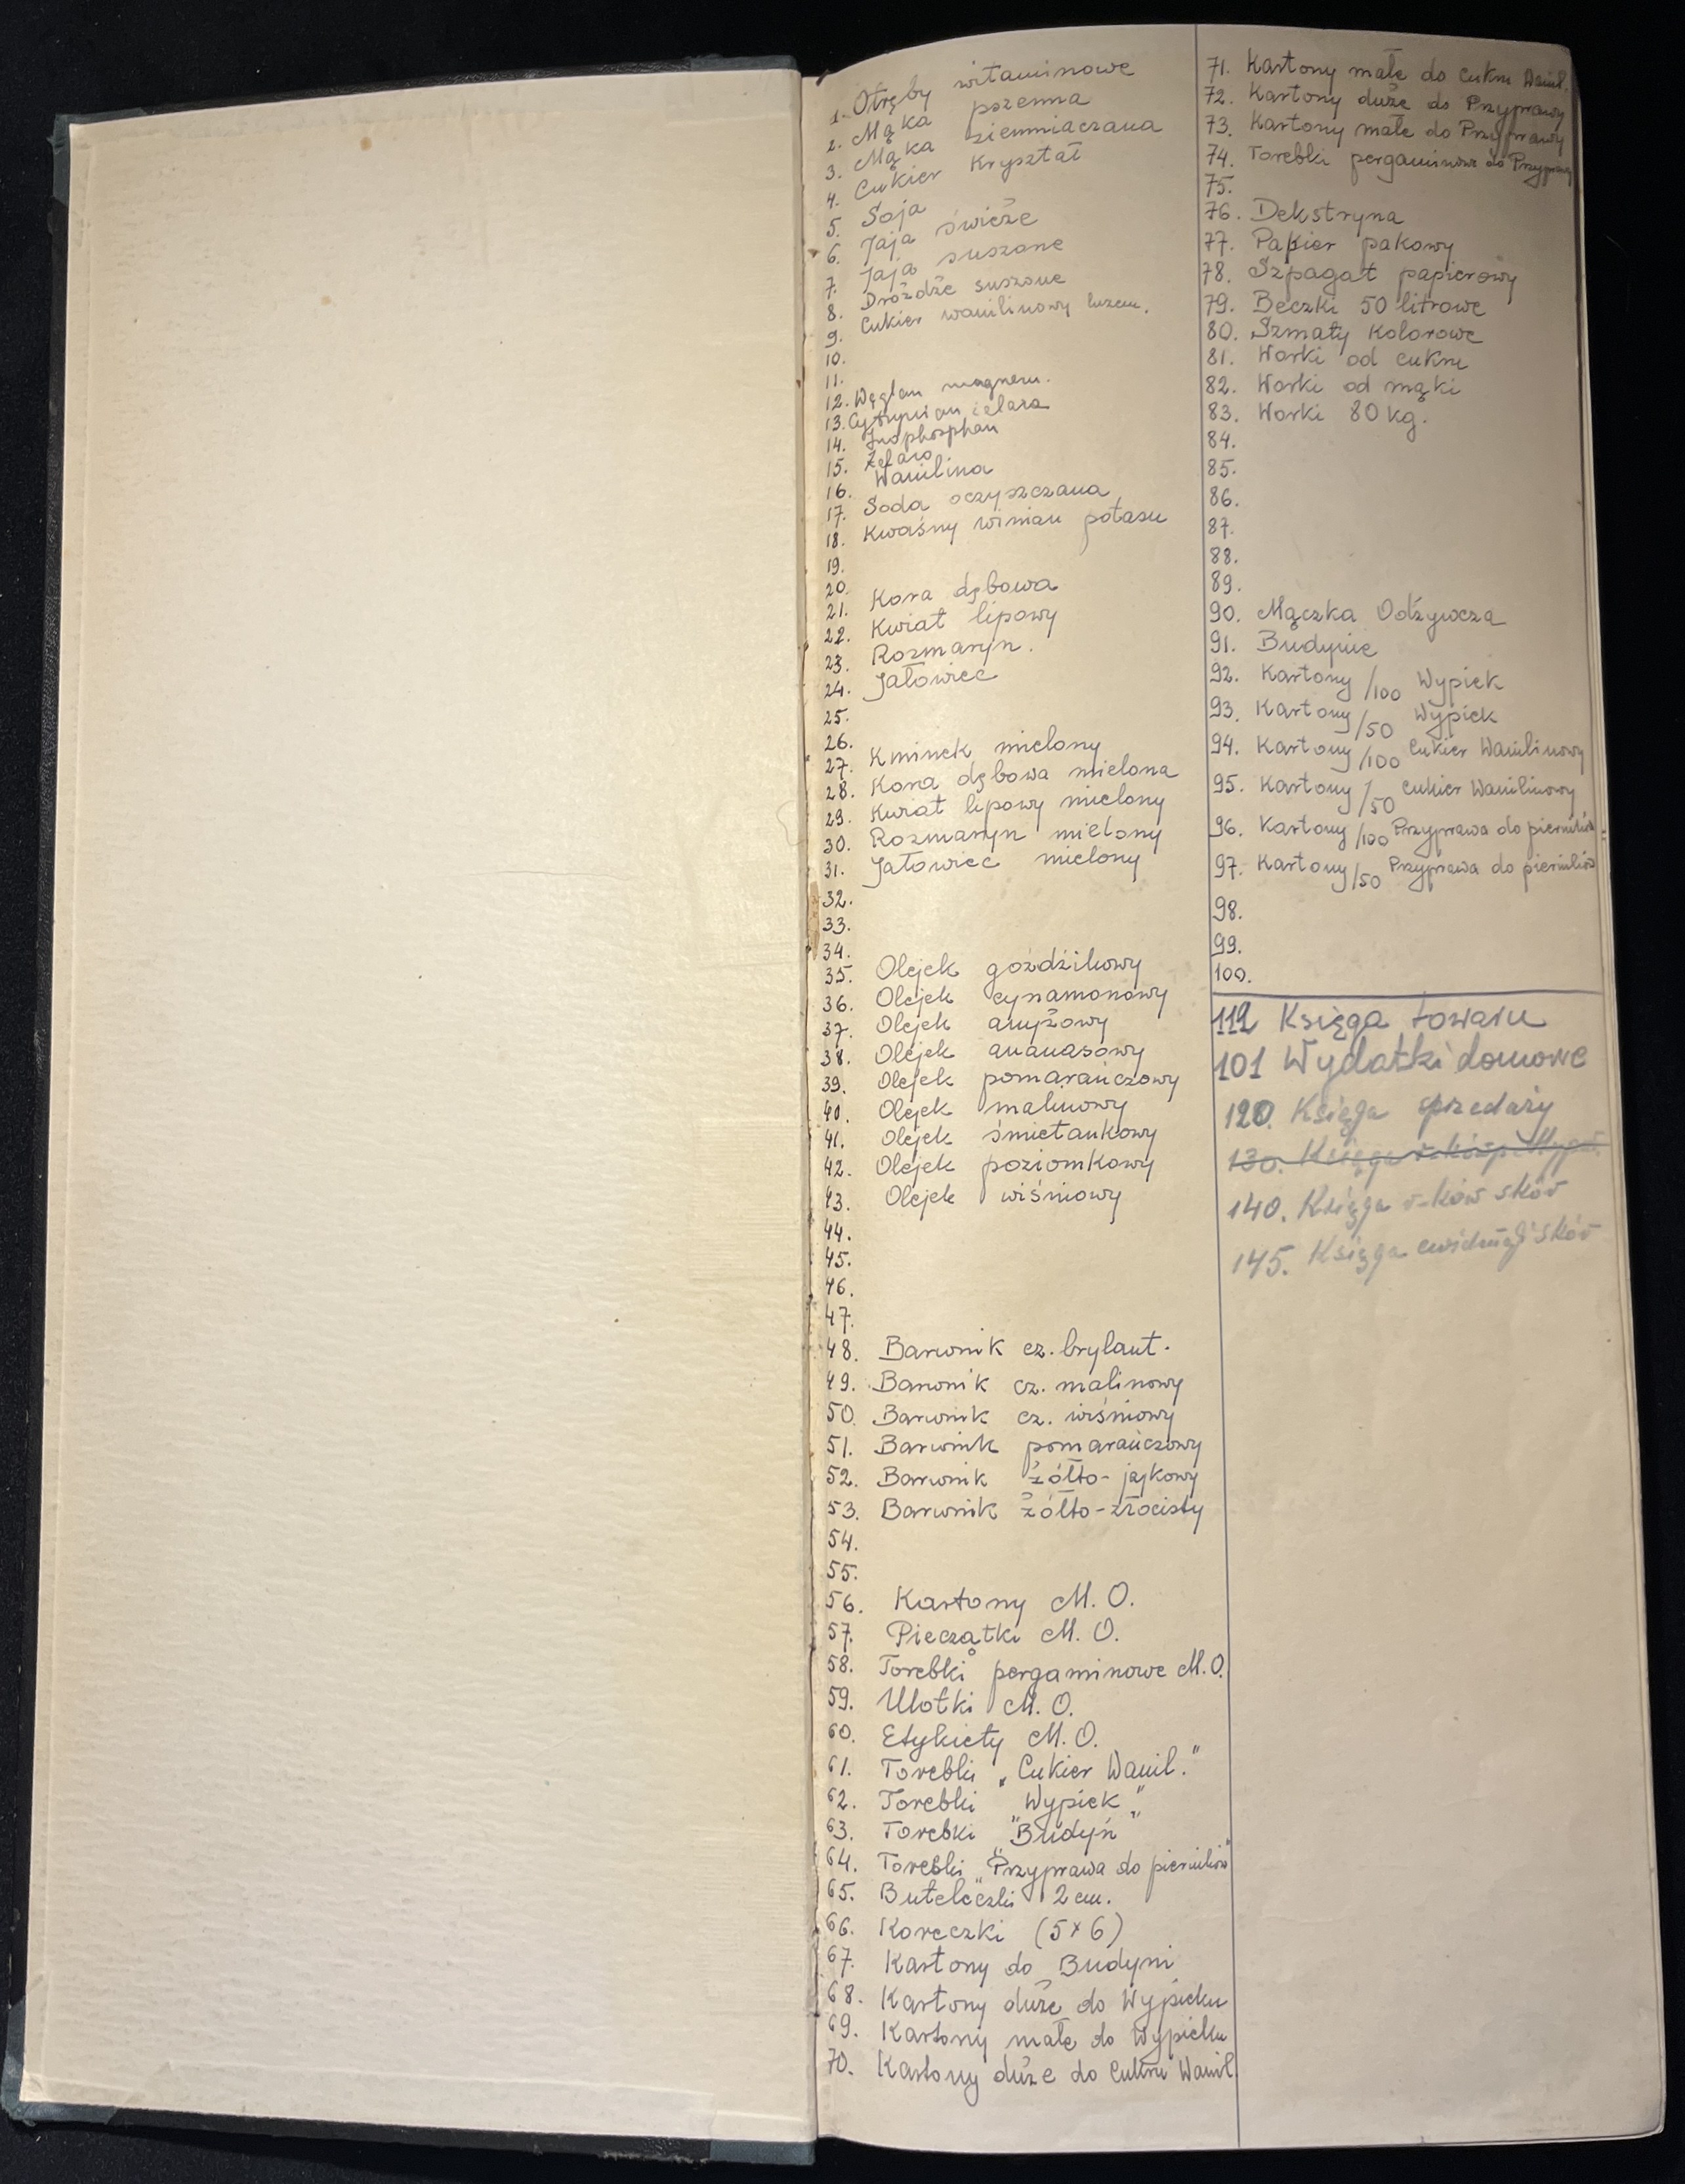 1. Otręby witaminowe
2. Mąka pszenna
3. Mąka ziemniaczana
4. Cukier Kryształ
5. Soja
6. Jaja świeże
7. Jaja suszone
8. Drożdże suszone
9. Cukier wanilinowy luzem.
10.
11.
12. Węglan magnezu.
13. Cytrynian żelaza
14. Fosphosphan
15. Żelazo
16. Wanilina
17. Soda oczyszczana
18. Kwaśny winian potasu
19.
20.
21. Kora dębowa
22. Kwiat lipowy
23. Rozmaryn.
24. Jałowiec
25.
26.
27. Kminek mielony
28. Kora dębowa mielona
29. Kwiat lipowy mielony
30. Rozmaryn mielony
31. Jałowiec mielony
32.
33.
34.
35. Olejek goździkowy
36. Olejek cynamonowy
37. Olejek anyżowy
38. Olejek ananasowy
39. Olejek pomarańczowy
40. Olejek malinowy
41. Olejek śmietankowy
42. Olejek poziomkowy
43. Olejek wiśniowy
44.
45.
46.
47.
48. Barwnik cz. brylant.
49. Barwnik cz. malinowy
50. Barwnik cz. wiśniowy
51. Barwnik pomarańczowy
52. Barwnik żółto-jajkowy
53. Barwnik żółto-złocisty
54.
55.
56. Kartony M. O.
57. Pieczątki M. O.
58. Torebki pergaminowe M. O.
59. Ulotki M. O.
60. Etykiety M. O.
61. Torebki „Cukier Wanil."
62. Torebki "Wypiek"
63. Torebki "Budyń"
64. Torebki "Przyprawa do pierników"
65. Buteleczki 2 cm.
66. Koreczki (5×6)
67. Kartony do Budyni
68. Kartony duże do Wypieku
69. Kartony małe do Wypieku
70. Kartony duże do Cukru Wanil.
71. Kartony małe do Cukru Wanil.
72. Kartony duże do Przyprawy
73. Kartony małe do Przyprawy
74. Torebki pergaminowe do Przyprawy
75.
76. Dekstryna
77. Papier pakowy
78. Szpagat papierowy
79. Beczki 50 litrowe
80. Szmaty Kolorowe
81. Worki od cukru
82. Worki od mąki
83. Worki 80 kg.
84.
85.
86.
87.
88.
89.
90. Mączka Odżywcza
91. Budynie
92. Kartony /100 Wypiek
93. Kartony /50 Wypiek
94. Kartony /100 Cukier Wanilinowy
95. Kartony /50 Cukier Wanilinowy
96. Kartony /100 Przyprawa do pierników
97. Kartony /50 Przyprawa do pierników
98.
99.
100.
112 Księga towaru
101 Wydatki domowe
120. Księga sprzedaży
130. Księga
140. Księga r-ków skór
145. Księga ewidencji skór